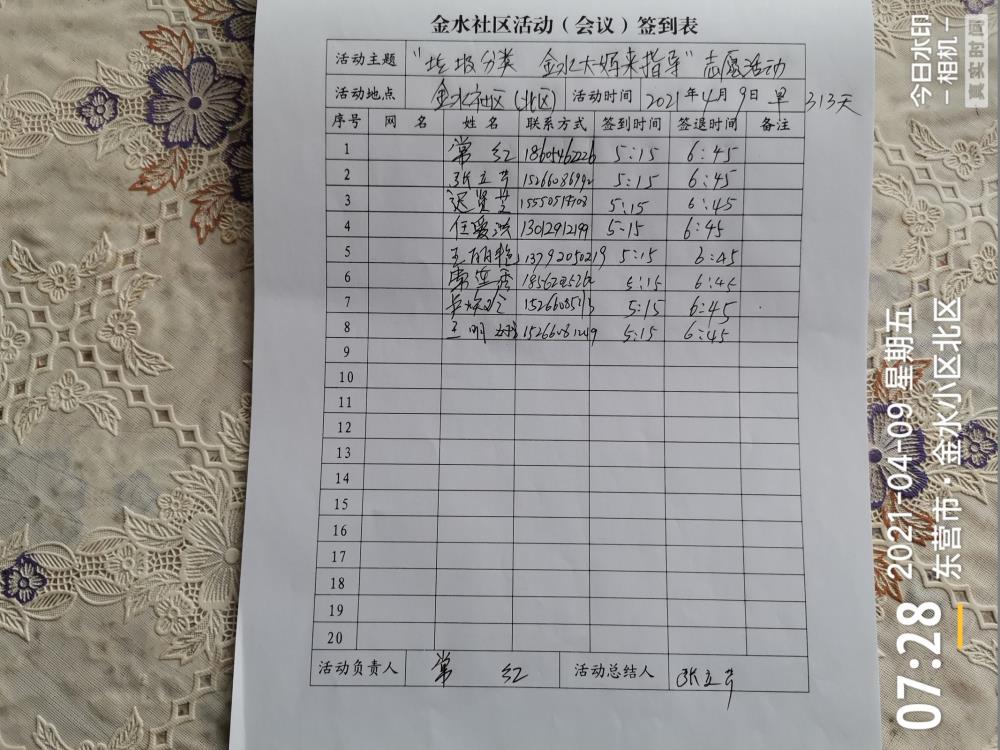 金水社区活动（会议）签到表
活动主题 “垃圾分类 金水大妈来指导”志愿活动
活动地点 金水社区(北区) 活动时间 2021年4月9日 早 313天
序号 网名 姓名 联系方式 签到时间 签退时间 备注
1 常红 18605462226 5:15 6:45
2 张立芹 5:15 6:45
3 迟贤芝 5:15 6:45
4 任爱洪 13012912199 5:15 6:45
5 王丽艳 13792050219 5:15 6:45
6 5:15 6:45
7 5:15 6:45
8 王明 5:15 6:45
9
10
11
12
13
14
15
16
17
18
19
20
活动负责人 常红 活动总结人 张立芹
今日水印
－相机－
真实时间
07:28 2021-04-09 星期五
东营市·金水小区北区